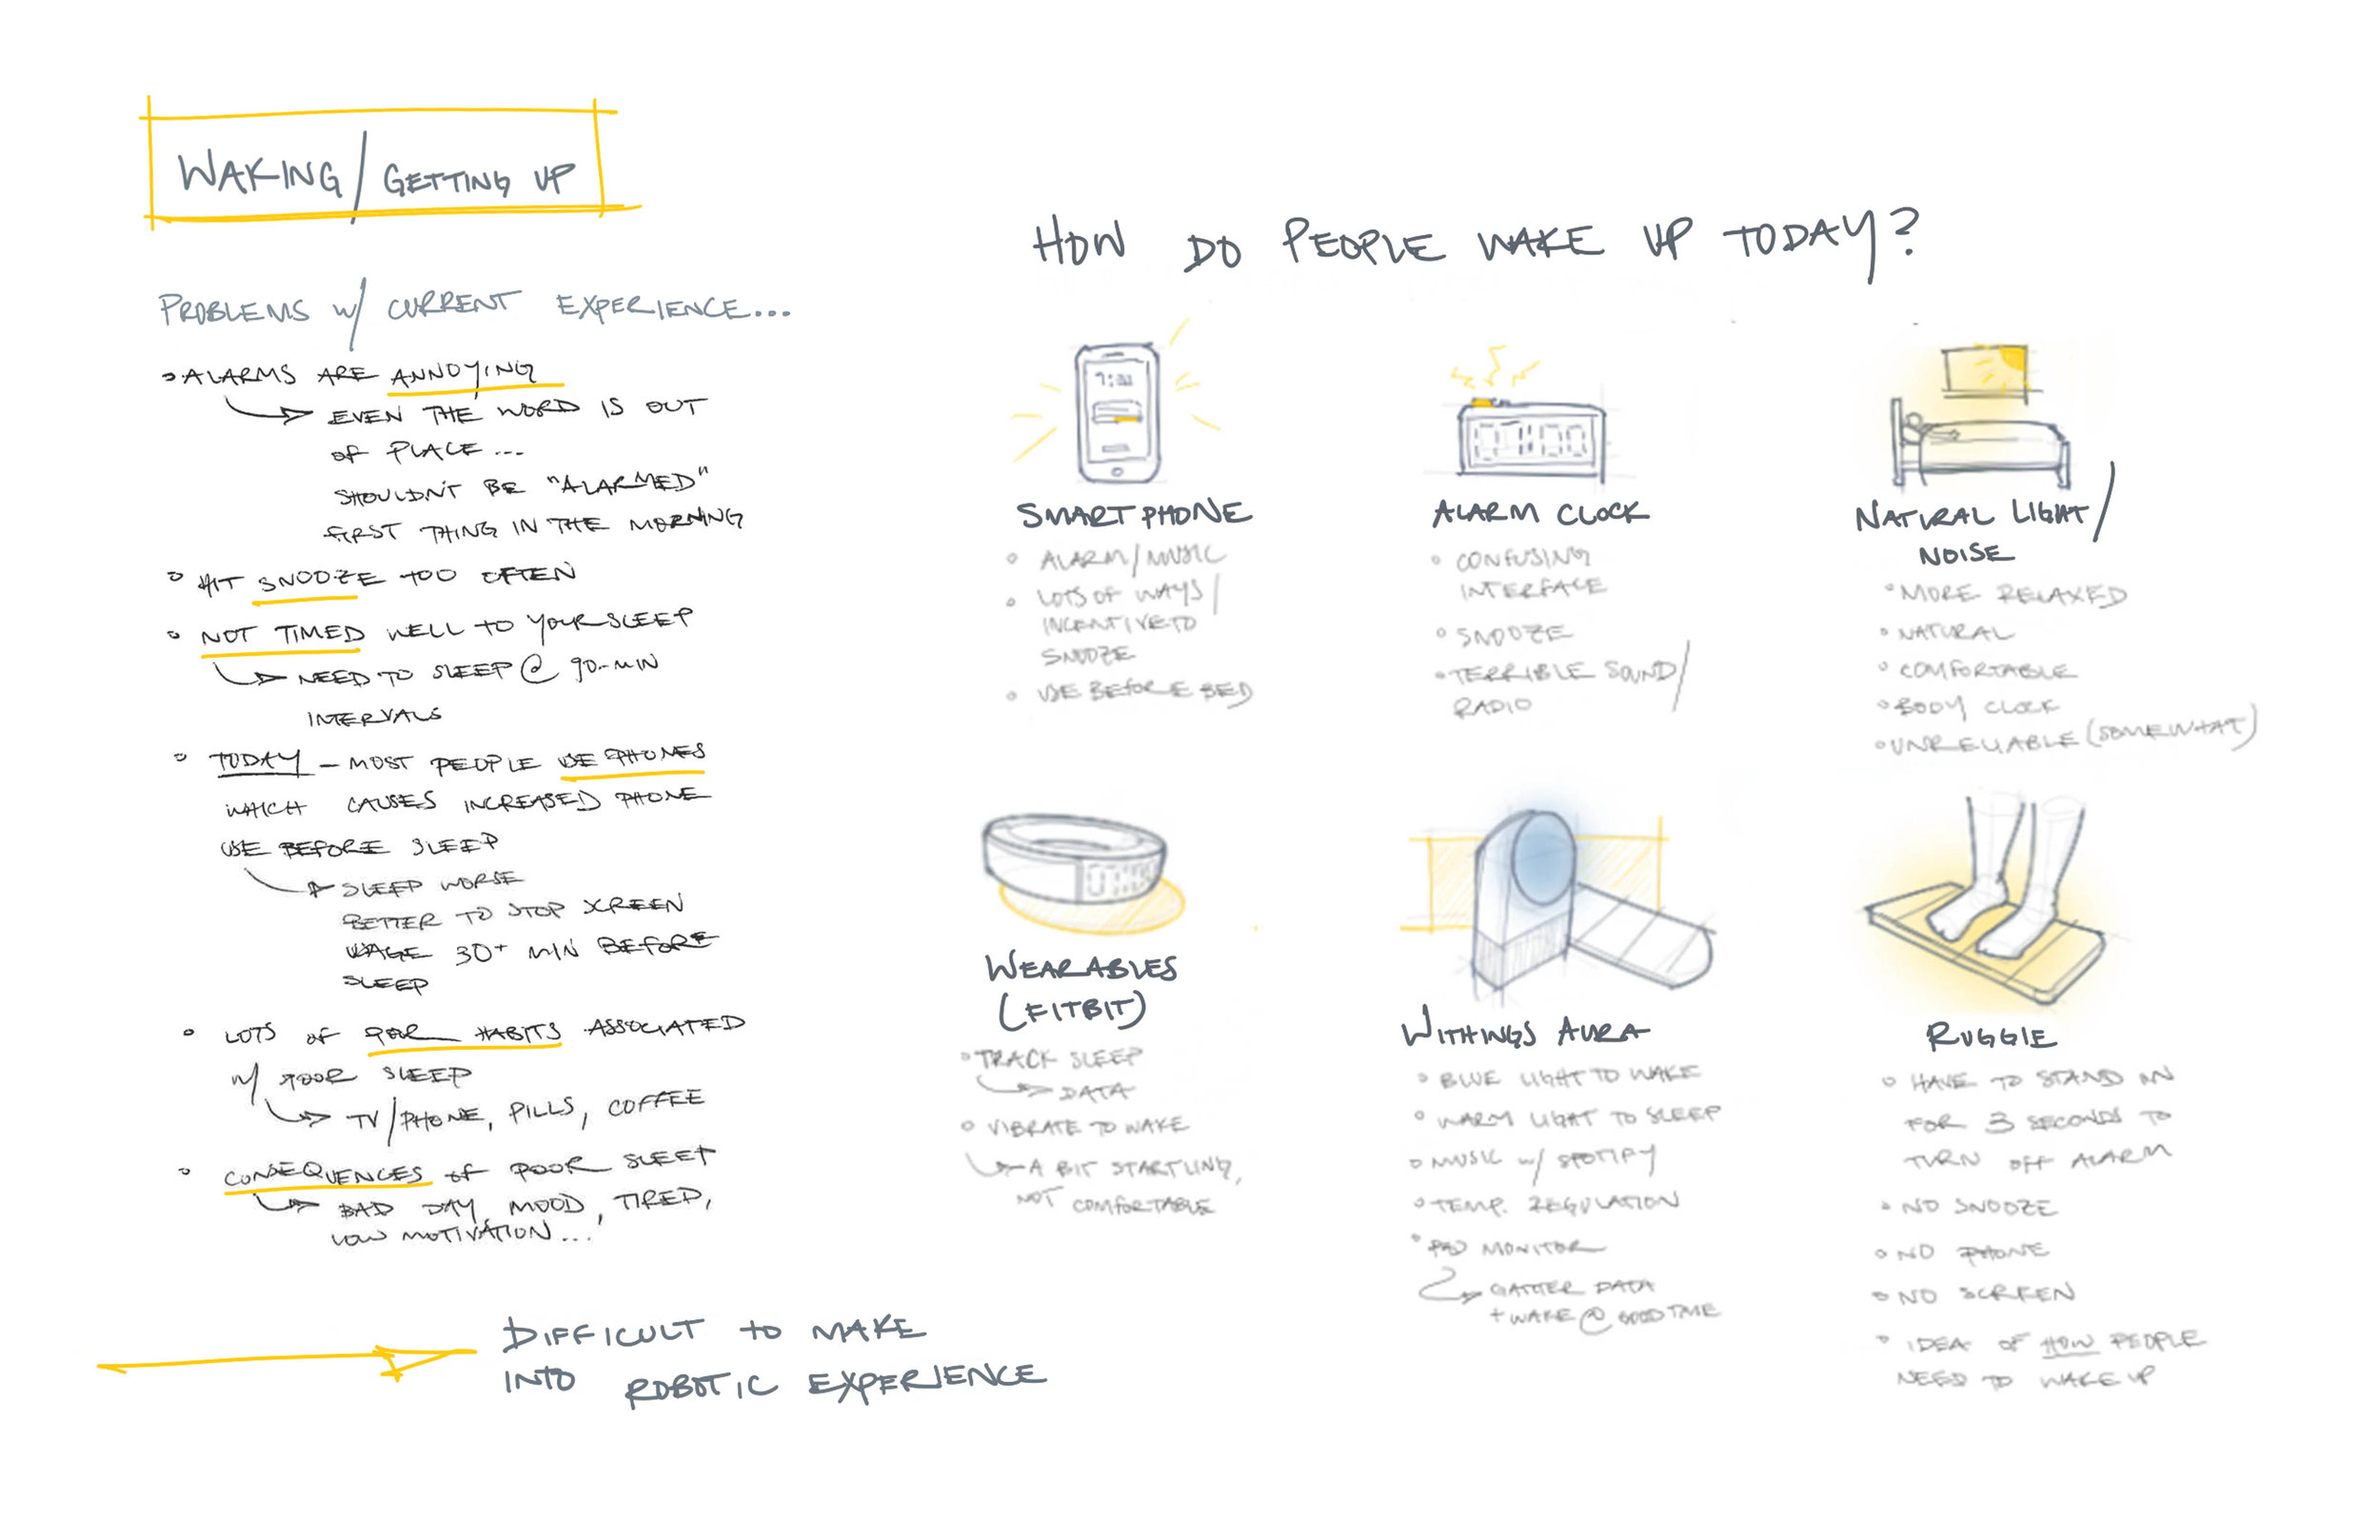 WAKING/GETTING UP
PROBLEMS w/ CURRENT EXPERIENCE...
ALARMS ARE ANNOYING
EVEN THE WORD IS OUT
OF PLACE...
SHOULDN'T BE "ALARMED"
FIRST THING IN THE MORNING
HIT SNOOZE TOO OFTEN
NOT TIMED WELL TO YOUR SLEEP
NEED TO SLEEP @ 90-MIN
INTERVALS
TODAY – MOST PEOPLE USE PHONES
WHICH CAUSES INCREASED PHONE
USE BEFORE SLEEP
SLEEP WORSE
BETTER TO STOP SCREEN
USAGE 30+ MIN BEFORE
SLEEP
LOTS OF POOR HABITS ASSOCIATED
w/ POOR SLEEP
TV/PHONE, PILLS, COFFEE
CONSEQUENCES OF POOR SLEEP
BAD DAY, MOOD, TIRED,
LOW MOTIVATION...
DIFFICULT TO MAKE
INTO ROBOTIC EXPERIENCE
HOW DO PEOPLE WAKE UP TODAY?
SMARTPHONE
ALARM/MUSIC
LOTS OF WAYS/
INCENTIVE TO
SNOOZE
USE BEFORE BED
07:00
ALARM CLOCK
CONFUSING
INTERFACE
SNOOZE
TERRIBLE SOUND/
RADIO
NATURAL LIGHT/
NOISE
MORE RELAXED
NATURAL
COMFORTABLE
BODY CLOCK
UNRELIABLE (SOMEWHAT)
WEARABLES
(FITBIT)
TRACK SLEEP
DATA
VIBRATE TO WAKE
A BIT STARTLING,
NOT COMFORTABLE
WITHINGS AURA
BLUE LIGHT TO WAKE
WARM LIGHT TO SLEEP
MUSIC w/ SPOTIFY
TEMP. REGULATION
PAD MONITOR
GATHER DATA
+ WAKE @ GOOD TIME
RUGGIE
HAVE TO STAND ON
FOR 3 SECONDS TO
TURN OFF ALARM
NO SNOOZE
NO PHONE
NO SCREEN
IDEA OF HOW PEOPLE
NEED TO WAKE UP